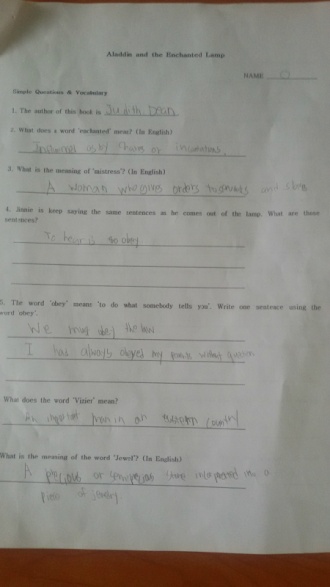 Aladdin and the Enchanted Lamp
NAME O
Simple Questions & Vocabulary
1. The author of this book is Judith Dean
2. What does a word 'enchanted' mean? (In English)
or incantations.
3. What is the meaning of 'mistress'? (In English)
A woman who gives orders to servants and slaves
4. Jinnie is keep saying the same sentences as he comes out of the lamp. What are those
sentences?
To hear is to obey
5. The word 'obey' means 'to do what somebody tells you'. Write one sentence using the
word 'obey'.
We obey the law
I had always obeyed my without question
What does the word 'Vizier' mean?
An man in an country
What is the meaning of the word 'Jewel'? (In English)
A precious or stone incorporated into a
piece of jewelry